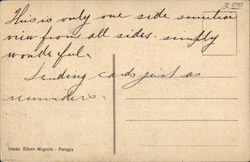 This is only one side similar
view from all sides. simply
wonderful.
Sending cards just as
reminders.
2.00
Ettore Mignini - Perugia